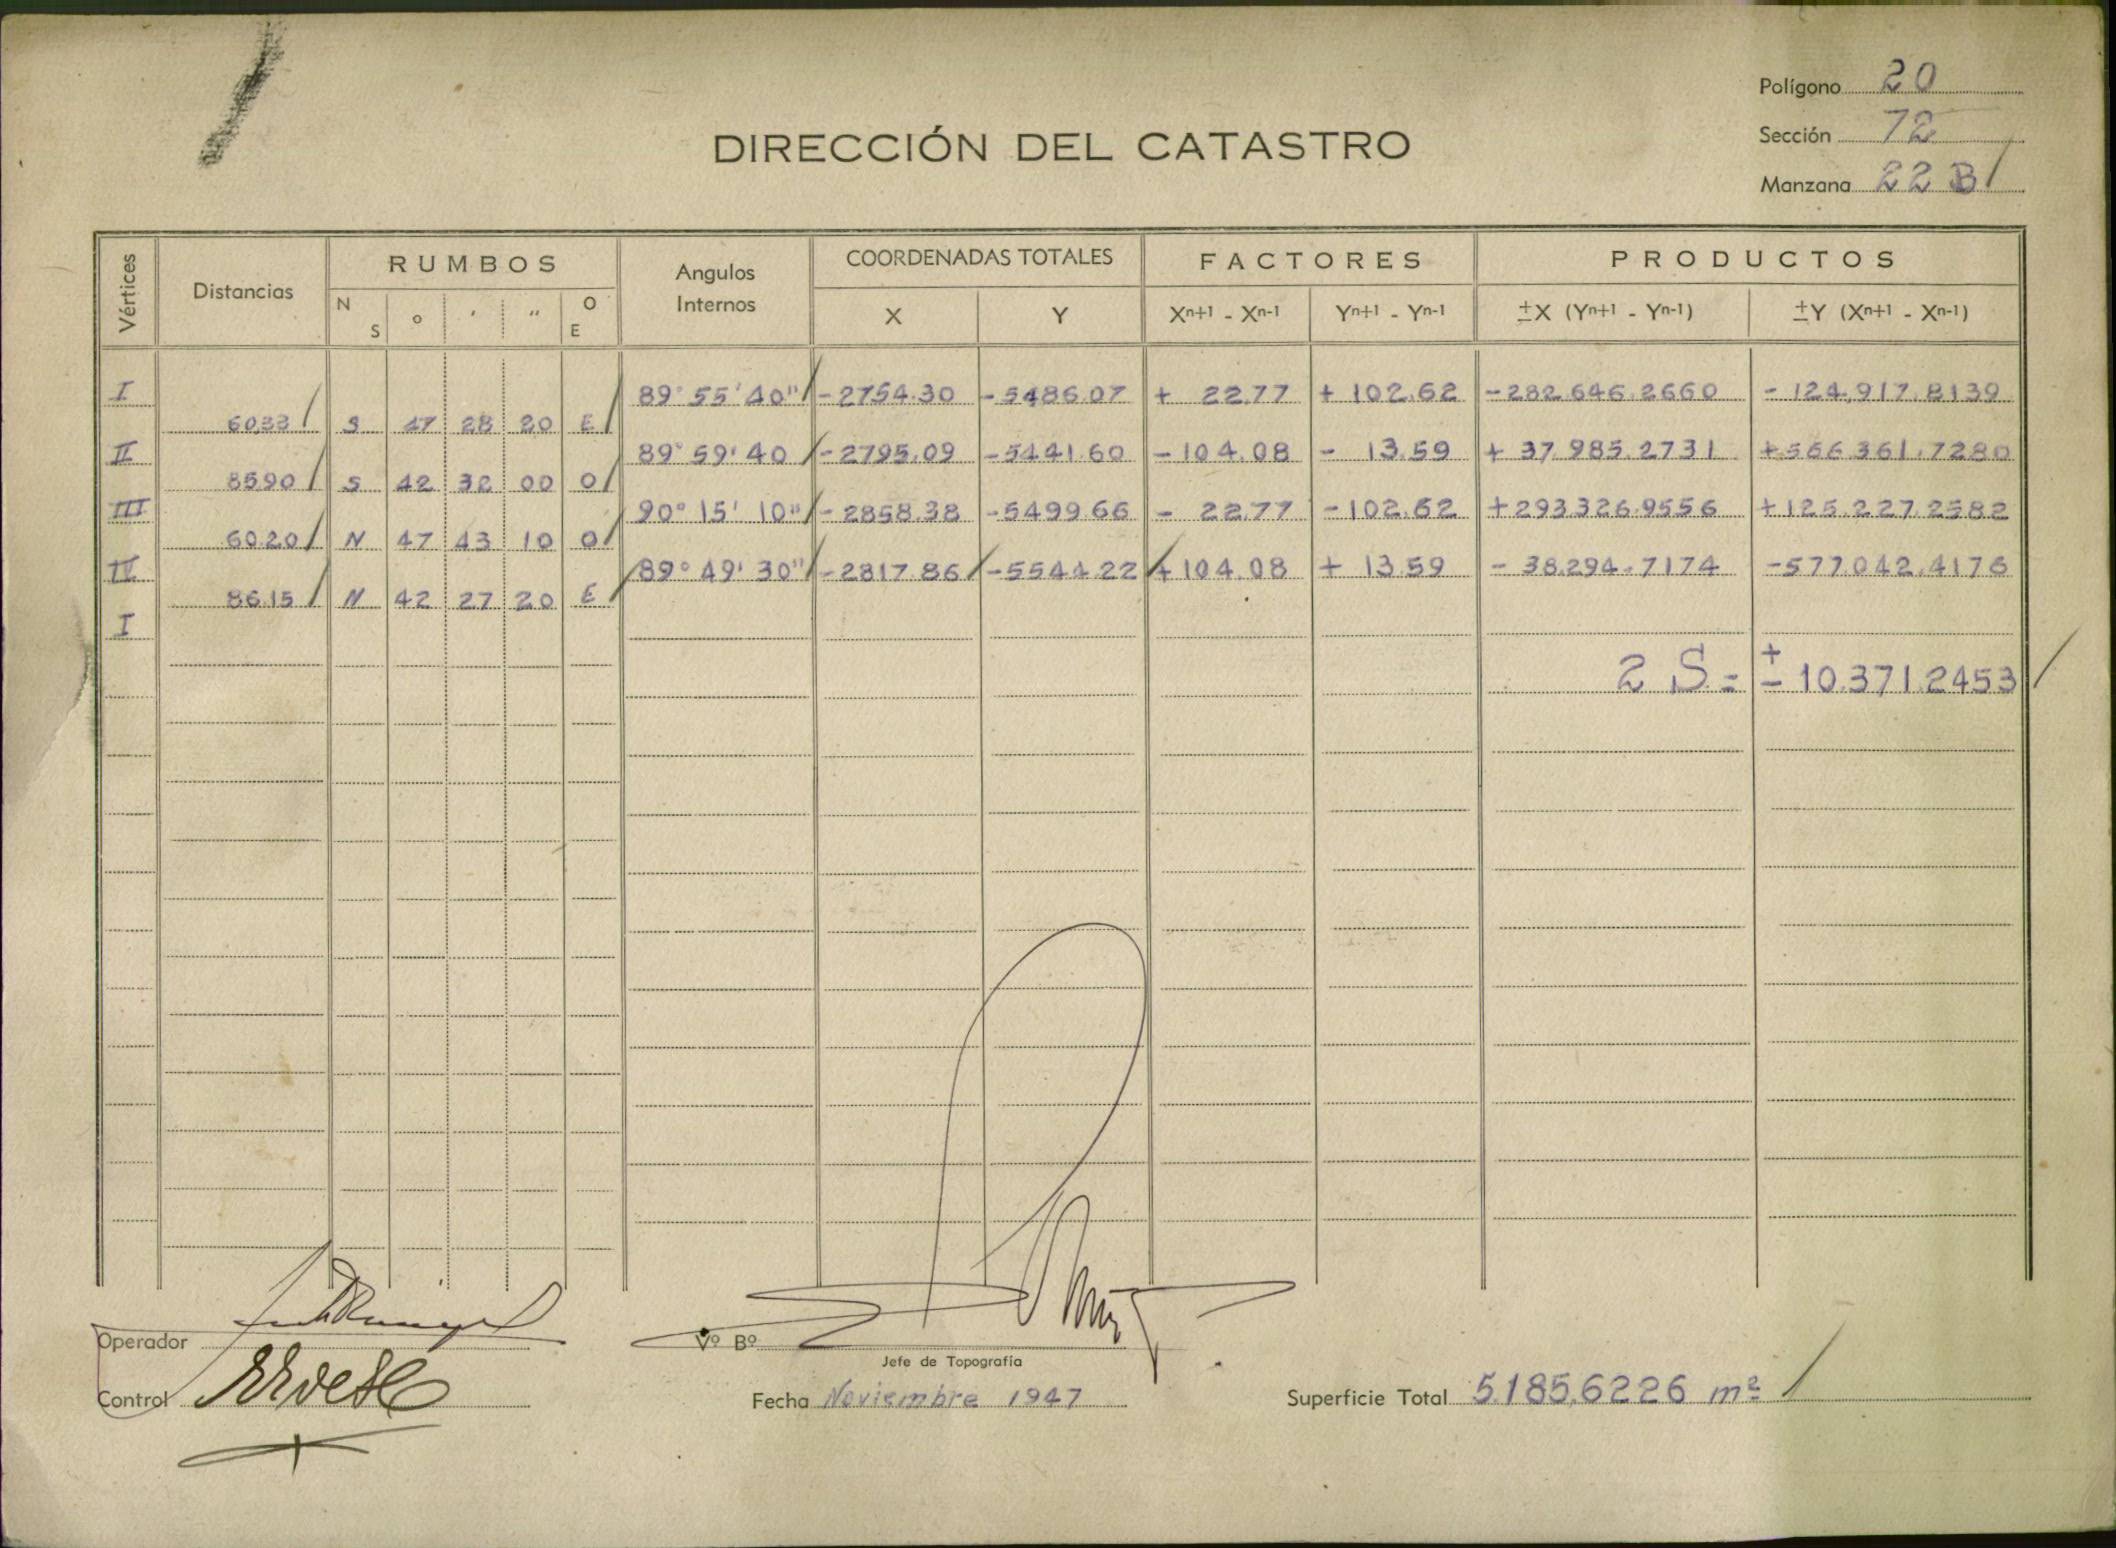 Polígono 20
Sección 72
DIRECCIÓN DEL CATASTRO
Manzana 22 B
Vértices Distancias RUMBOS Angulos Internos COORDENADAS TOTALES FACTORES PRODUCTOS
N S ° ' " O E X Y Xn+1 - Xn-1 Yn+1 - Yn-1 ±X (Yn+1 - Yn-1) ±Y (Xn+1 - Xn-1)
I 89° 55' 40" -2754.30 -5486.07 + 22.77 + 102.62 -282.646.2660 - 124.917.8139
60.33 S 47 28 20 E
II 89° 59' 40 -2795.09 -5441.60 -104.08 - 13.59 + 37.985.2731 +566.361.7280
85.90 S 42 32 00 O
III 90° 15' 10" -2858.38 -5499.66 - 22.77 -102.62 +293.326.9556 +125.227.2582
60.20 N 47 43 10 O
IV 89° 49' 30" -2817.86 -5544.22 +104.08 + 13.59 - 38.294.7174 -577.042.4176
86.15 N 42 27 20 E
I
2 S = ± 10.371.2453
Operador
Vº Bº
Jefe de Topografía
Control
Fecha Noviembre 1947
Superficie Total 5.185,6226 m²